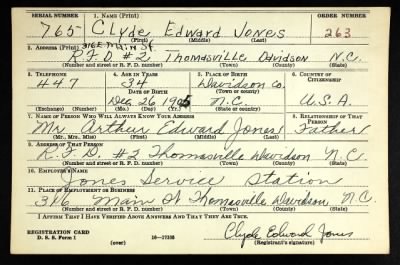 SERIAL NUMBER 1. NAME (Print) ORDER NUMBER
765 Clyde Edward Jones 263
(First) (Middle) (Last)
316 E Main St.
2. ADDRESS (Print)
R.F.D. #2 Thomasville Davidson N.C.
(Number and street or R. F. D. number) (Town) (County) (State)
3. TELEPHONE 4. AGE IN YEARS 5. PLACE OF BIRTH 6. COUNTRY OF CITIZENSHIP
447 34 Davidson Co.
DATE OF BIRTH (Town or county)
Dec. 26 1905 N.C. U.S.A.
(Exchange) (No.) (Mo.) (Day) (Yr.) (State or country)
7. NAME OF PERSON WHO WILL ALWAYS KNOW YOUR ADDRESS 8. RELATIONSHIP OF THAT PERSON
Mr. Arthur Edward Jones Father
(Mr., Mrs., Miss) (First) (Middle) (Last)
9. ADDRESS OF THAT PERSON
R.F.D. #2 Thomasville Davidson N.C.
(Number and street or R. F. D. number) (Town) (County) (State)
10. EMPLOYER'S NAME
Jones Service Station
11. PLACE OF EMPLOYMENT OR BUSINESS
316 Main St Thomasville Davidson N.C.
(Number and street or R. F. D. number) (Town) (County) (State)
I AFFIRM THAT I HAVE VERIFIED ABOVE ANSWERS AND THAT THEY ARE TRUE.
REGISTRATION CARD
D. S. S. Form 1 (over) 16—17105 Clyde Edward Jones
(Registrant's signature)